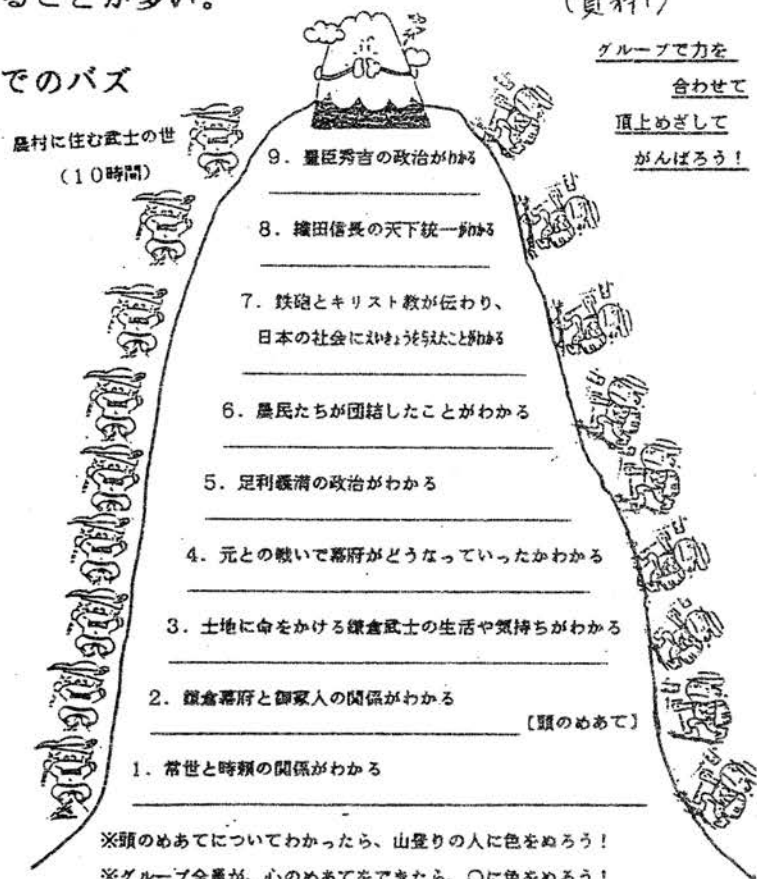 ることが多い。
(資料1)
でのバズ
グループで力を
合わせて
頂上めざして
がんばろう！
農村に住む武士の世
（１０時間）
9．豊臣秀吉の政治がわかる
8．織田信長の天下統一がわかる
7．鉄砲とキリスト教が伝わり、
日本の社会にえいきょうを与えたことがわかる
6．農民たちが団結したことがわかる
5．足利義満の政治がわかる
4．元との戦いで幕府がどうなっていったかわかる
3．土地に命をかける鎌倉武士の生活や気持ちがわかる
2．鎌倉幕府と御家人の関係がわかる
［頭のめあて］
1．常世と時頼の関係がわかる
※頭のめあてについてわかったら、山登りの人に色をぬろう！
※グループ全員が、心のめあてをできたら、○に色をぬろう！